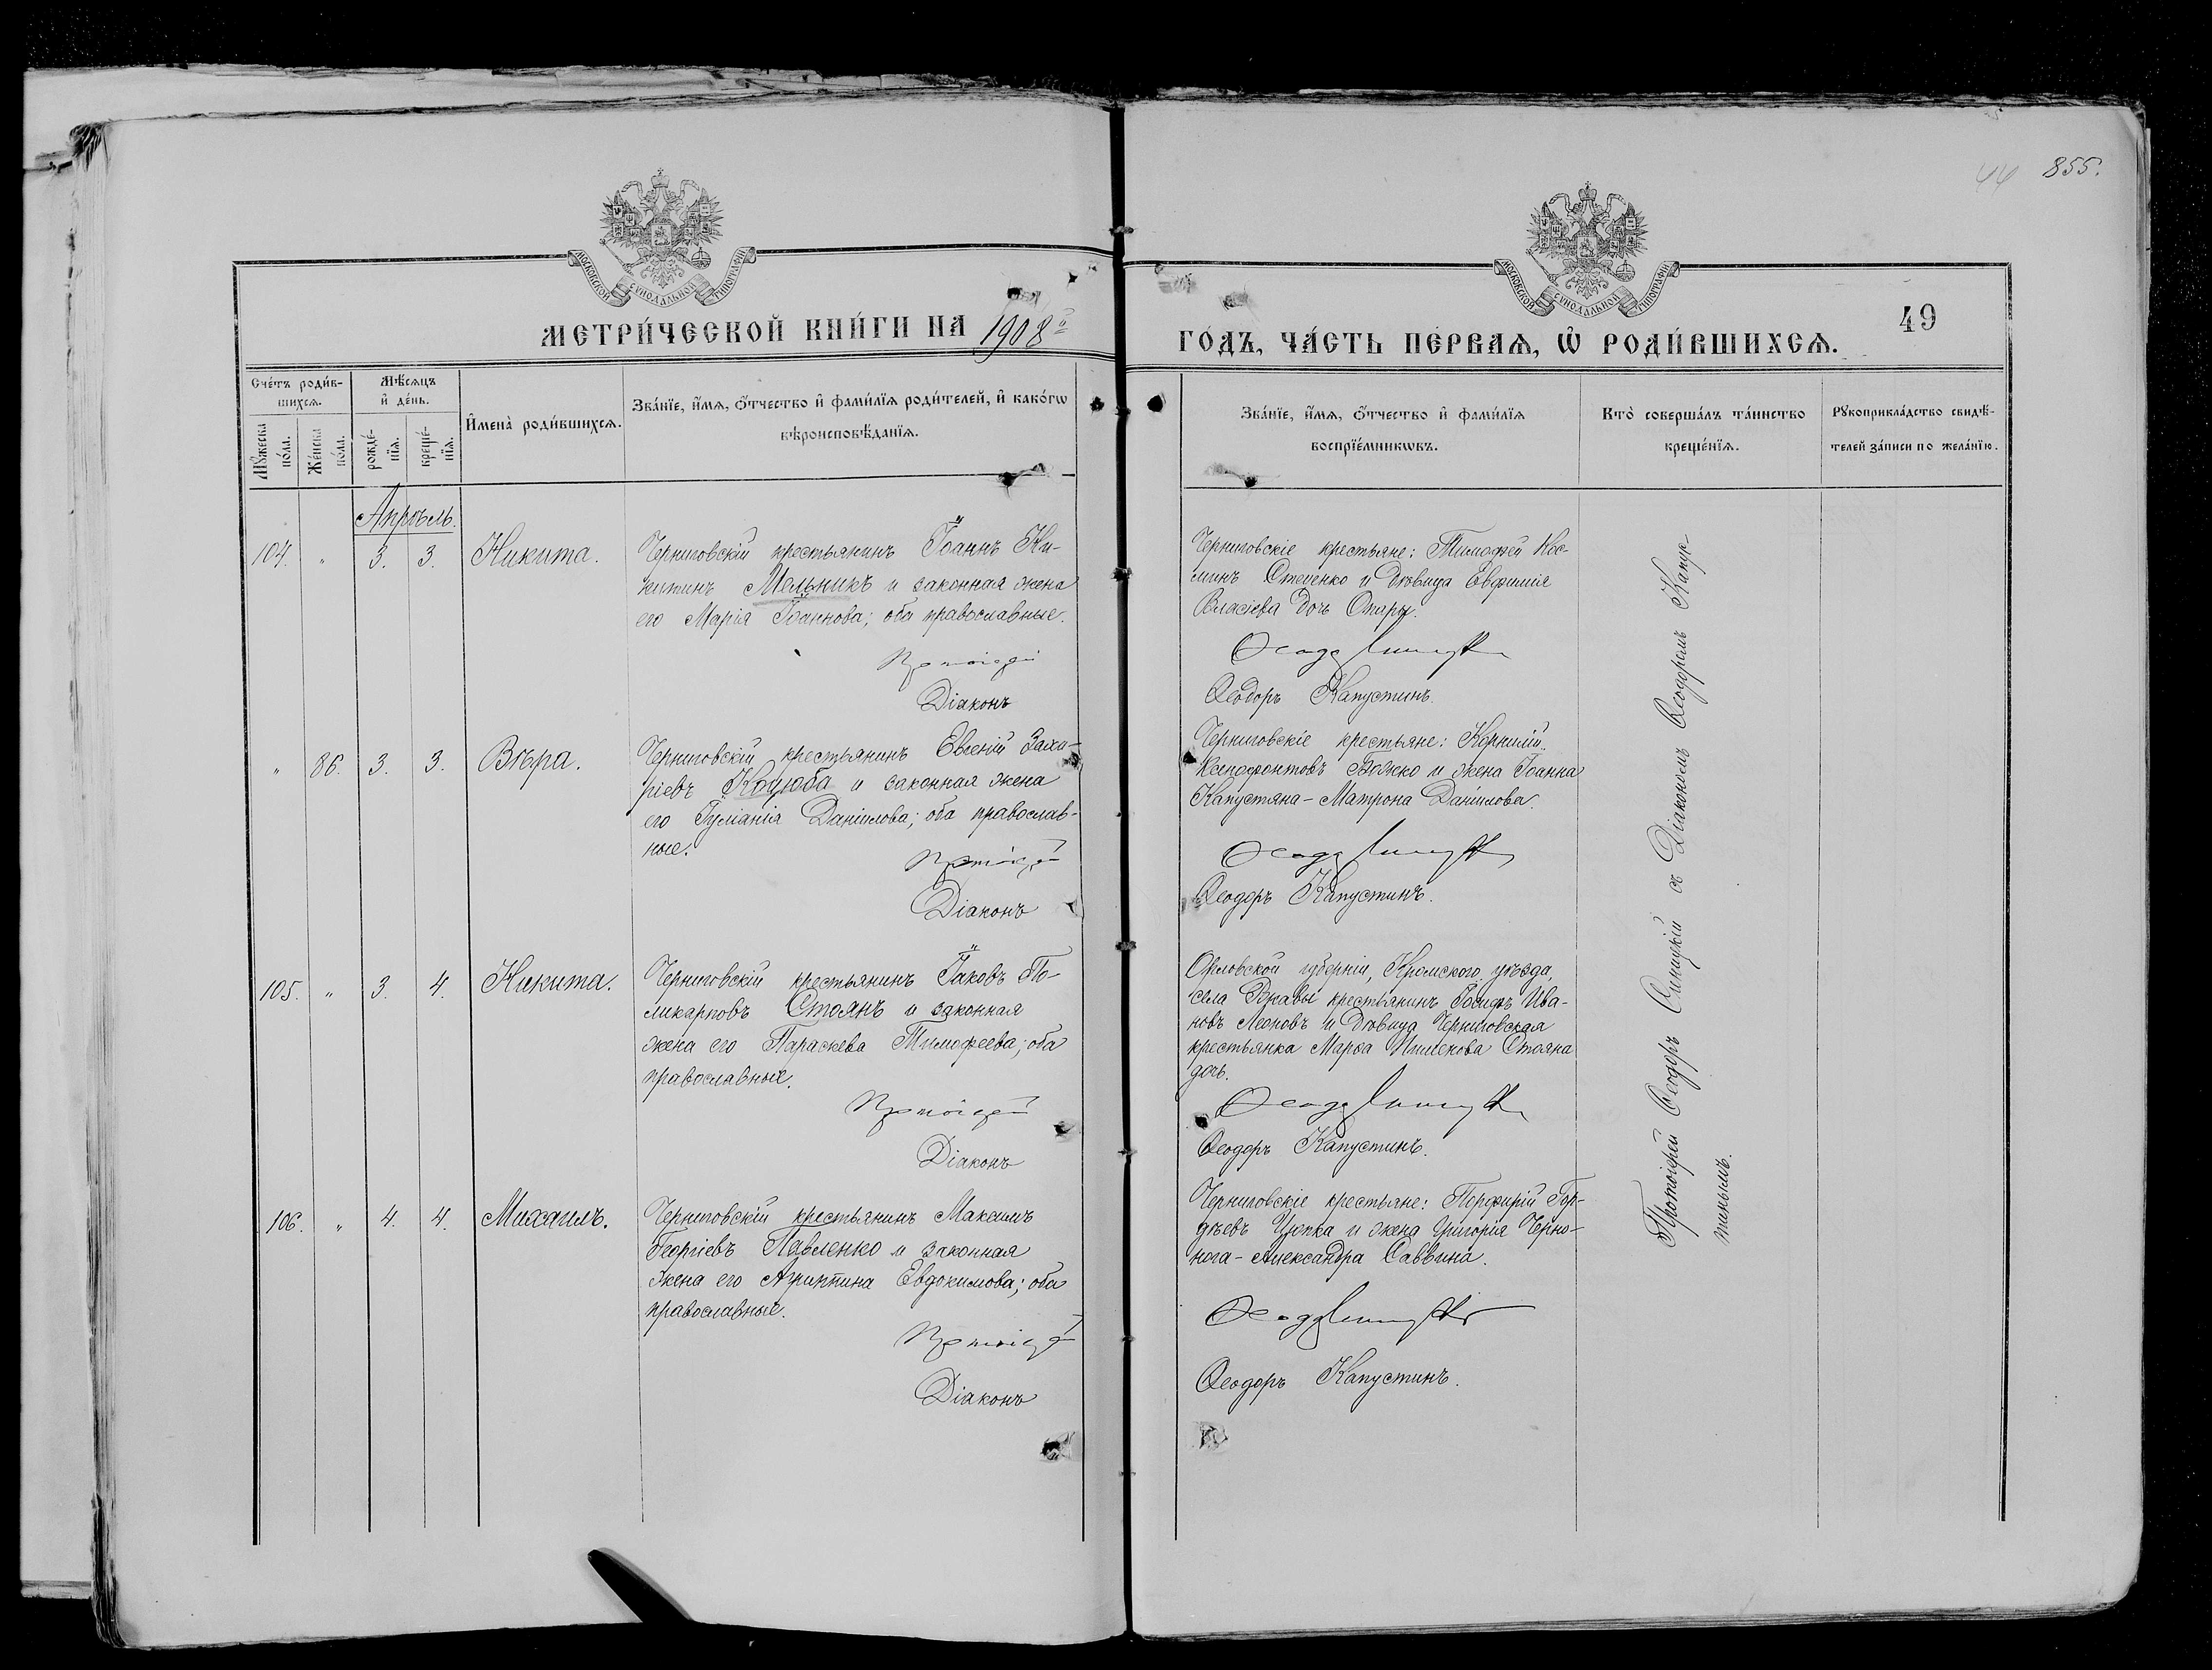 44 855.
МОСКОВСКОЙ СѴНОДАЛЬНОЙ ТИПОГРАФІИ
МОСКОВСКОЙ СѴНОДАЛЬНОЙ ТИПОГРАФІИ
МЕТРИ́ЧЕСКОЙ КНИ́ГИ НА 1908й
ГО́ДЪ, ЧА́СТЬ ПЕ́РВАѦ, Ѡ҆ РОДИ́ВШИХСѦ.
49
Сче́тъ роди́в-
шихсѧ.
Мꙋ́жеска по́ла.
Же́нска по́ла.
Мѣ́сѧцъ
и҆ де́нь.
рожде́-
нїѧ.
креще́-
нїѧ.
И҆мена̀ роди́вшихсѧ.
Зва́нїе, и҆́мѧ, ѻ҆́тчество и҆ фами́лїѧ роди́телей, и҆ како́гѡ
вѣроисповѣ́данїѧ.
Зва́нїе, и҆́мѧ, ѻ҆́тчество и҆ фами́лїѧ
воспрїе́мникѡвъ.
Кто̀ соверша́лъ та́инство
креще́нїѧ.
Рꙋкоприкла́дство свидѣ́-
телей за́писи по жела́нїю.
Апрѣль.
104. " 3. 3. Никита.
Черниговскій крестьянинъ Іоаннъ Ни-
китинъ Мельникъ и законная жена
его Марія Іоаннова; оба православные.
Протоіерей
Діаконъ
Черниговскіе крестьяне: Тимофей Кос-
минъ Стеценко и дѣвица Евфимія
Власіева дочь Опары.
Ѳеодоръ Капустинъ.
" 86. 3. 3. Вѣра.
Черниговскій крестьянинъ Евгеній Заха-
ріевъ Коцюба и законная жена
его Гуліанія Даніилова; оба православ-
ные.
Протоіерей
Діаконъ
Черниговскіе крестьяне: Корнилій
Ксенофонтовъ Божко и жена Іоанна
Капустяна - Матрона Даніилова.
Ѳеодоръ Капустинъ.
105. " 3. 4. Никита.
Черниговскій крестьянинъ Іаковъ По-
ликарповъ Стоянъ и законная
жена его Параскева Тимофеева; оба
православные.
Протоіерей
Діаконъ
Орловской губерніи, Кромского уѣзда,
села Ржавы крестьянинъ Іосифъ Ива-
новъ Леоновъ и дѣвица Черниговская
крестьянка Марѳа Пименова Стояна
дочь.
Ѳеодоръ Капустинъ.
106. " 4. 4. Михаилъ.
Черниговскій крестьянинъ Максимъ
Георгіевъ Павленко и законная
жена его Агрипина Евдокимова; оба
православные.
Протоіерей
Діаконъ
Черниговскіе крестьяне: Порфирій Гор-
дѣевъ Цюпка и жена Григорія Черно-
нога - Александра Саввина.
Ѳеодоръ Капустинъ.
Протоіерей Ѳеодоръ Синицкій съ Діакономъ Ѳеодоромъ Капус-
тинымъ.